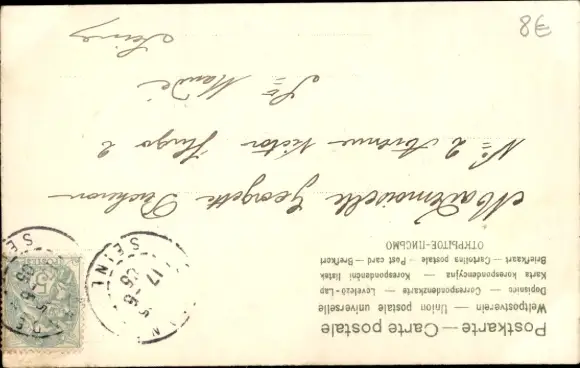 Postkarte — Carte postale
Weltpostverein — Union postale universelle
Dopisnice — Correspondenzkarte — Levelező-Lap
Karta korespondencyjna — Korespondenční lístek
Briefkaart — Cartolina postale — Post card — Brefkort
ОТКРЫТОЕ ПИСЬМО
Mademoiselle Georgette
No 2 Avenue Victor Hugo 2
St Mandé
Seine
SEINE
17
5
38